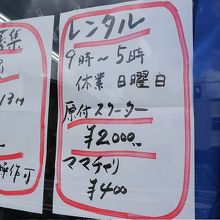 募集
13日
作可
レンタル
9時～5時
休業 日曜日
原付スクーター
¥2000
ママチャリ
¥400